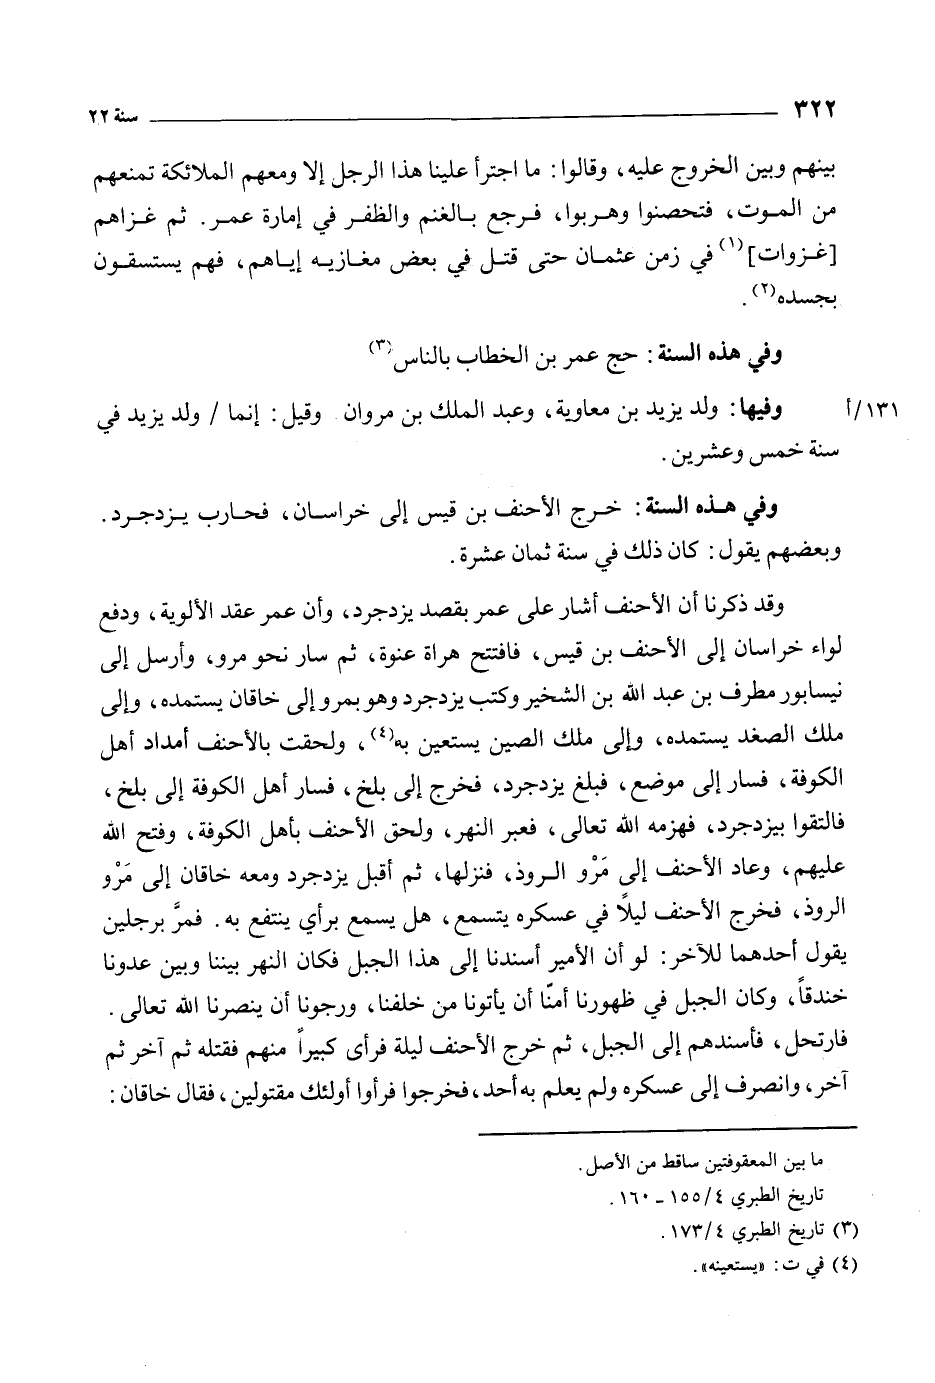 ٣٢٢ سنة ٢٢
بينهم وبين الخروج عليه، وقالوا: ما اجترأ علينا هذا الرجل إلا ومعهم الملائكة تمنعهم
من الموت، فتحصنوا وهربوا، فرجع بالغنم والظفر في إمارة عمر. ثم غزاهم
[غزوات](١) في زمن عثمان حتى قتل في بعض مغازيه إياهم، فهم يستسقون
بجسده(٢).
وفي هذه السنة: حج عمر بن الخطاب بالناس(٣)
١٣١/أ وفيها: ولد يزيد بن معاوية، وعبد الملك بن مروان وقيل: إنما / ولد يزيد في
سنة خمس وعشرين.
وفي هذه السنة: خرج الأحنف بن قيس إلى خراسان، فحارب يزدجرد.
وبعضهم يقول: كان ذلك في سنة ثمان عشرة.
وقد ذكرنا أن الأحنف أشار على عمر بقصد يزدجرد، وأن عمر عقد الألوية، ودفع
لواء خراسان إلى الأحنف بن قيس، فافتتح هراة عنوة، ثم سار نحو مرو، وأرسل إلى
نيسابور مطرف بن عبد الله بن الشخير وكتب يزدجرد وهو بمرو إلى خاقان يستمده، وإلى
ملك الصغد يستمده، وإلى ملك الصين يستعين به(٤)، ولحقت بالأحنف أمداد أهل
الكوفة، فسار إلى موضع، فبلغ يزدجرد، فخرج إلى بلخ، فسار أهل الكوفة إلى بلخ،
فالتقوا بيزدجرد، فهزمه الله تعالى، فعبر النهر، ولحق الأحنف بأهل الكوفة، وفتح الله
عليهم، وعاد الأحنف إلى مَرْو الروذ، فنزلها، ثم أقبل يزدجرد ومعه خاقان إلى مَرْو
الروذ، فخرج الأحنف ليلًا في عسكره يتسمع، هل يسمع برأي ينتفع به. فمرَّ برجلين
يقول أحدهما للآخر: لو أن الأمير أسندنا إلى هذا الجبل فكان النهر بيننا وبين عدونا
خندقاً، وكان الجبل في ظهورنا أمنّا أن يأتونا من خلفنا، ورجونا أن ينصرنا الله تعالى.
فارتحل، فأسندهم إلى الجبل، ثم خرج الأحنف ليلة فرأى كبيراً منهم فقتله ثم آخر ثم
آخر، وانصرف إلى عسكره ولم يعلم به أحد، فخرجوا فرأوا أولئك مقتولين، فقال خاقان:
ما بين المعقوفتين ساقط من الأصل.
تاريخ الطبري ٤/١٥٥ ـ ١٦٠.
(٣) تاريخ الطبري ٤/١٧٣.
(٤) في ت: «يستعينه».